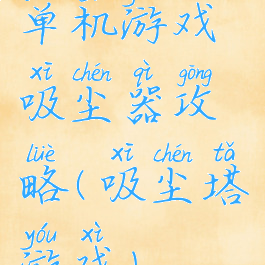 单机游戏
xī chén qì gōng
吸尘器攻
lüè xī chén tǎ
略(吸尘塔
yóu xì
游戏)